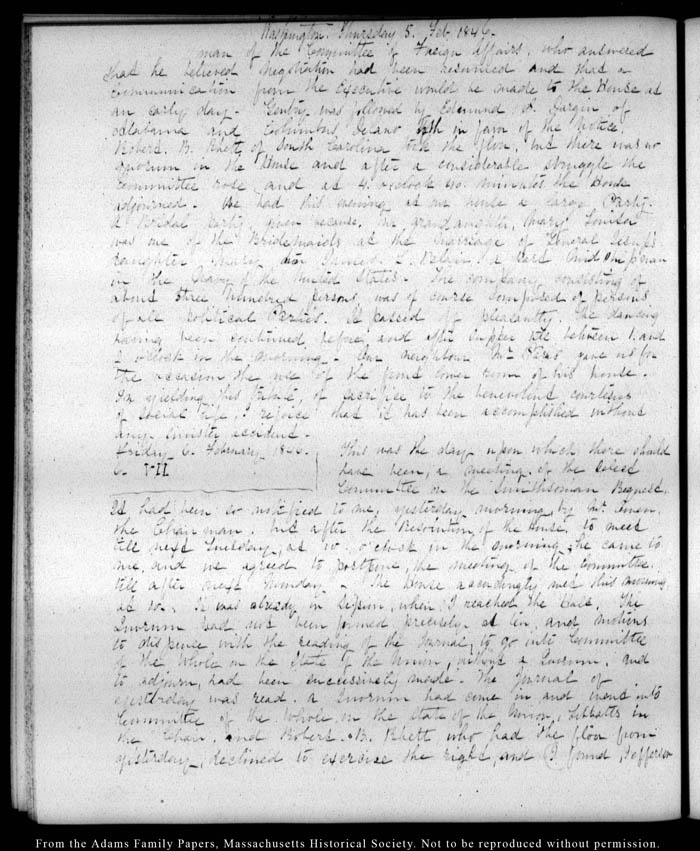 Washington. Thursday 5. Feb 1846.
man of the Committee of Foreign Affairs, who answered
that he believed Negotiation had been resumed and that a
Communication from the Executive would be made to the House at
an early day. Gentry was followed by Edmund S. Dargin of
Alabama and Columbus Delano in favr of the Notice.
Robert. B. Rhett, of South Carolina took the floor, but there was no
quorum in the House and after a considerable struggle the
Committee rose and at 4. o'clock 40. minutes the House
adjourned. We had this evening at our house a large Party.
A Bridal party, given because, my grandaughter, Mary Louisa
was one of the Bridemaids at the marriage of General Jesup's
daughter Mary to a Midshipman
in the Navy of the United States. The company consisting of
about three hundred persons, was of course composed of persons
of all political Parties. It passed off pleasantly. The dancing
having been continued, before, and after supper till between 1. and
2 o'clock in the morning. Our neighbour Mr gave us for
the occasion the use of the front lower room of his house.
In yielding this tribute, of sacrifice to the benevolent courtesies
of social life, I rejoice that it has been accomplished without
any sinister accident.
Friday 6. February 1846.
6. VII
This was the day upon which there should
have been, a meeting of the Select
Committee on the Smithsonian Bequest.
It had been so notified to me, yesterday morning by Mr Owen,
the Chairman. but after the Resolution of the House, to meet
till next Tuesday, at 10. o'clock in the morning, he came to
me, and we agreed to postpone, the meeting of the Committee,
till after next Monday. The House accordingly met this morning
at 10. It was already in session, when I reached the Hall. The
Quorum had not been formed, precisely at ten, and motions
to dispence with the reading of the Journal, to go into Committee
of the Whole on the State of the Union, without a Quorum, and
to adjourn, had been successively made. The Journal of
yesterday was read, a Quorum had come in and went into
Committee of the whole, on the state of the Union, Tibbatts in
the Chair, and Robert. B. Rhett who had the floor from
yesterday, declined to exercise the right, and I found, Jefferson
From the Adams Family Papers, Massachusetts Historical Society. Not to be reproduced without permission.